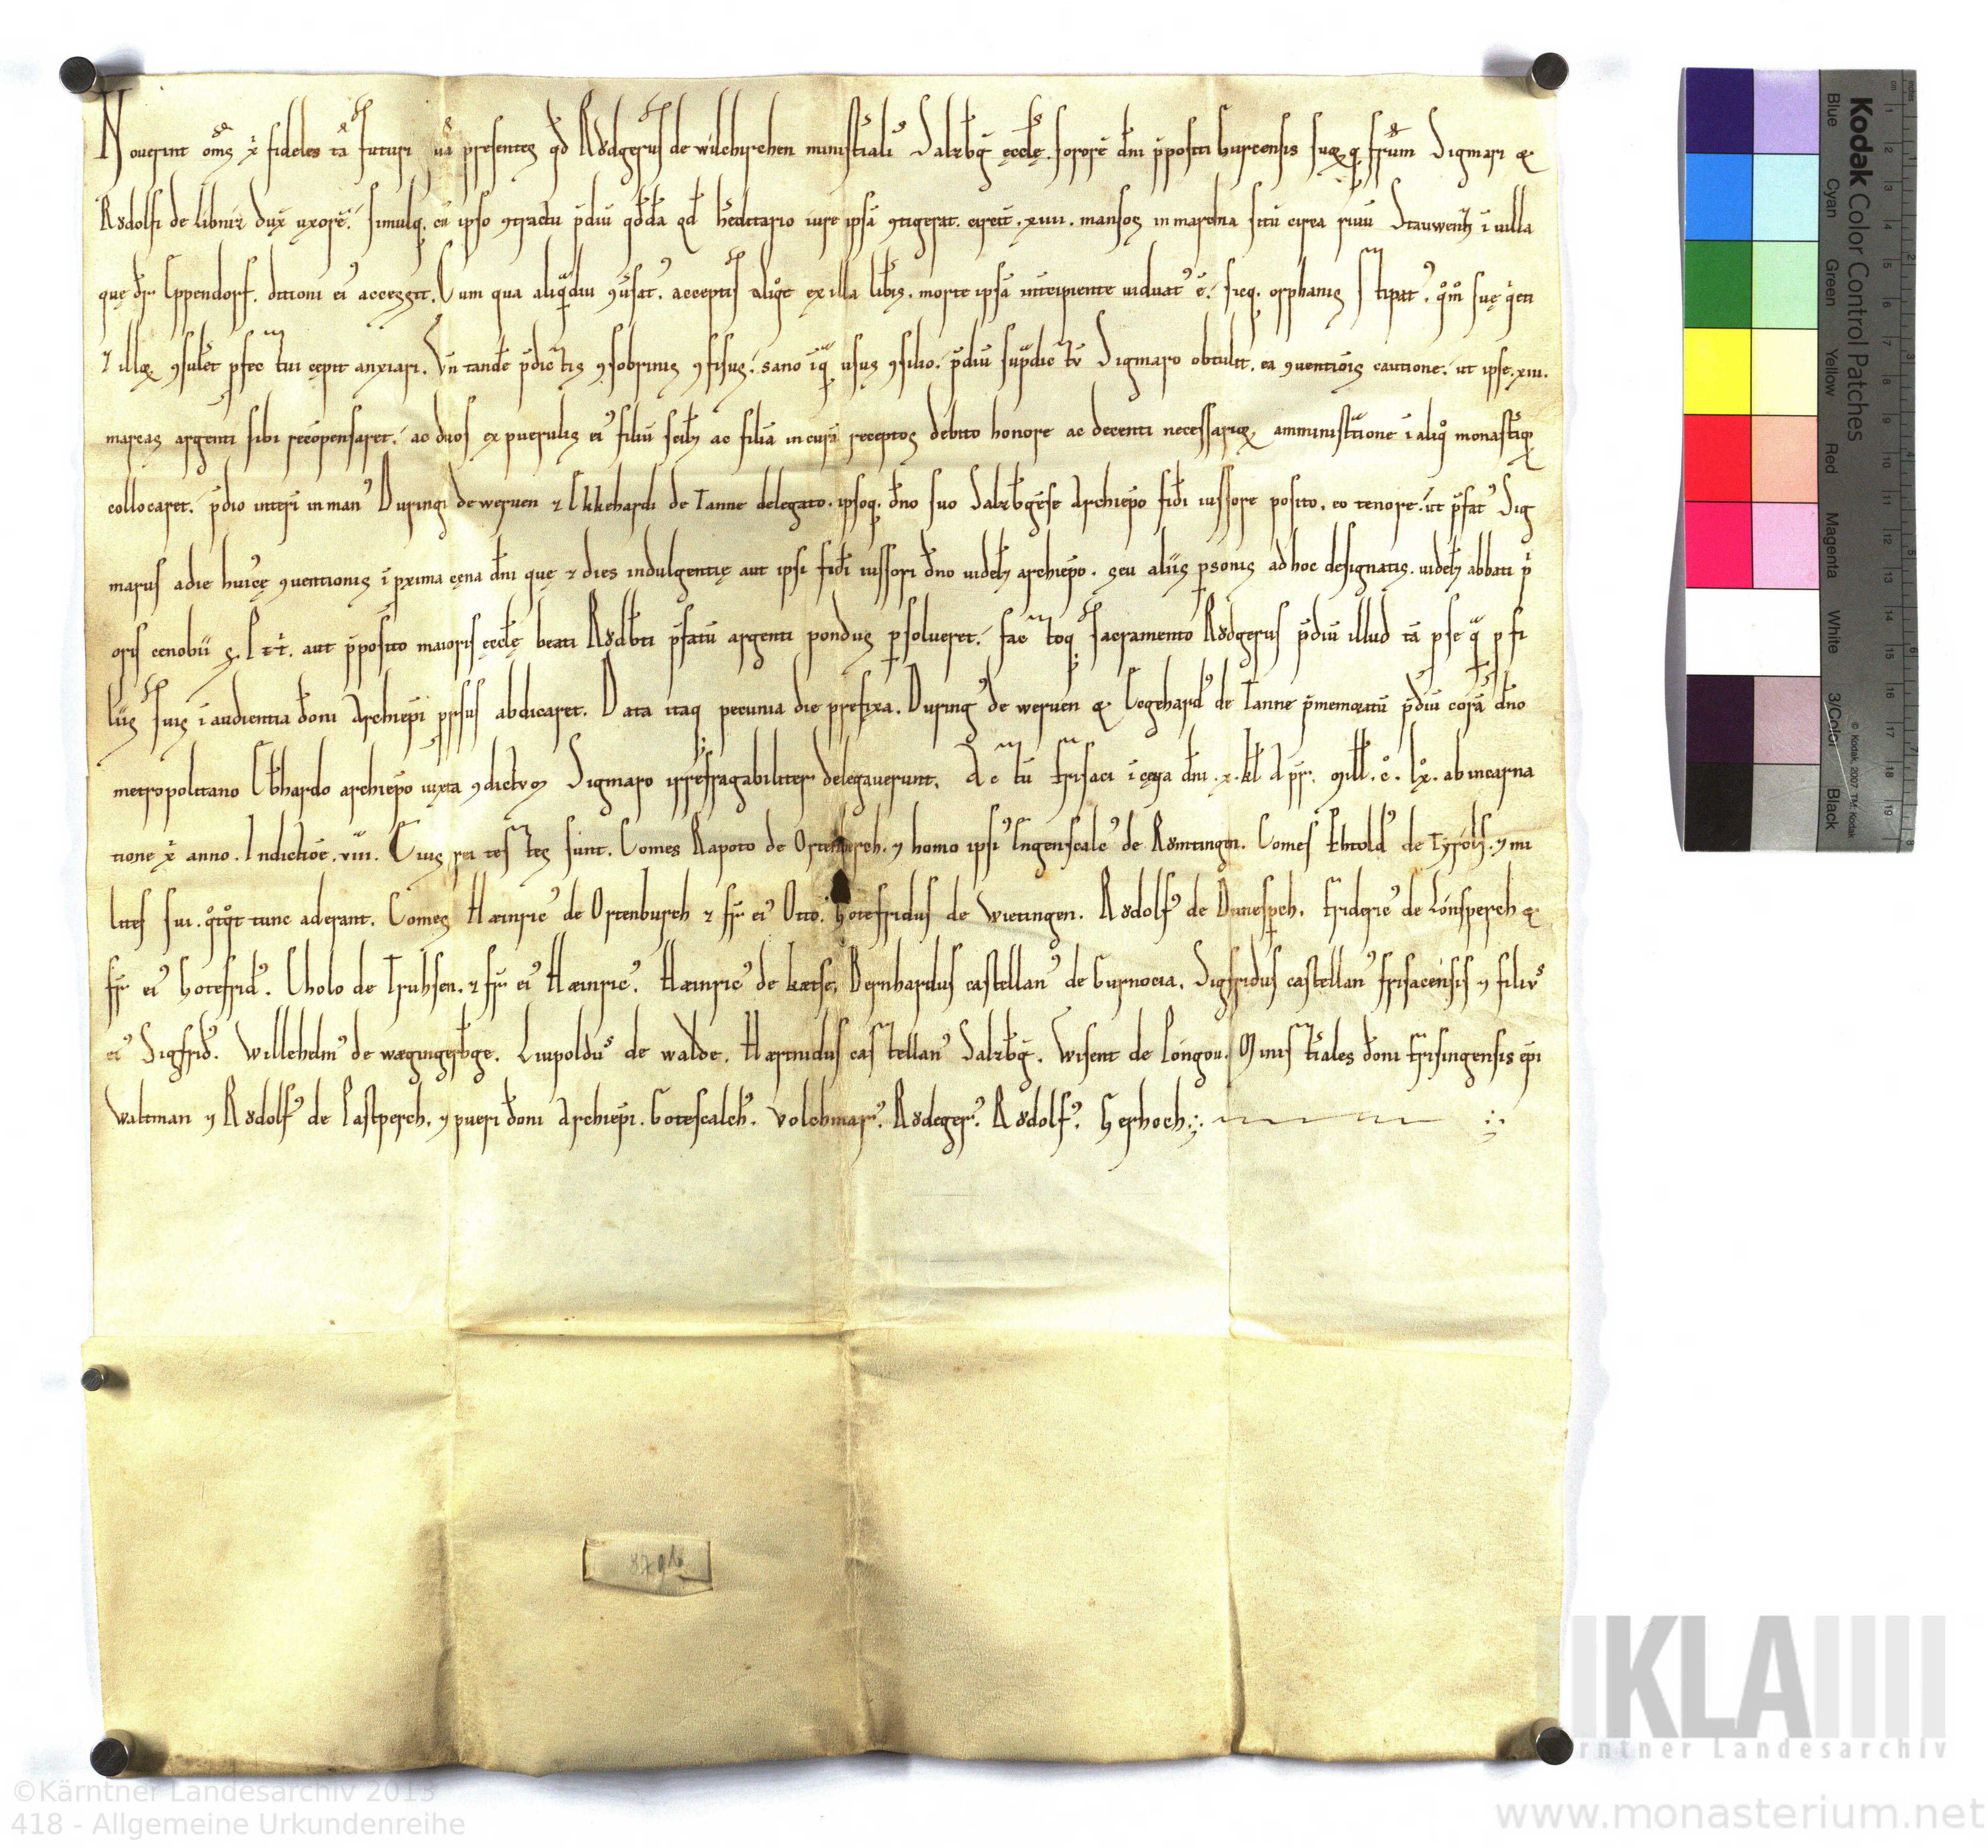 Nouerint om̅s x̅ fideles ta̅ futuri qua̅ presentes qd̅ Rŏdgerus de wilchirchen ministˢialiˢ Salzb̅g̅ ęccl̅ę sorore̅ dn̅i p̅positi Gurcensis suoꝝ q̨ fr̅um Sigmari &
Rŏdolfi de Libniz dux̅ uxore̅. simulq; cu̅ ipso ꝯtractu p̅diu̅ qd̅da̅ qd̅ heditario iure ipsa̅ ꝯtigerat. circit̅. xiiii. mansos in marchia situ̅ circa riuu̅ Stauwentz i̅ uilla
quę dr̅ Eppendorf. ditioni eiꝰ accessit. Cum qua aliq̅diu ꝯu̅satꝰ. acceptis aliqͦt ex illa lib̅is. morte ipsa̅ intcipiente uiduatꝰ e̅. sicq; orphanis stipatꝰ. qͦm̅ suę q̅eti
⁊ illoꝝ ꝯsulet̅ pfectui cępit anxiari. Vn̅ tande̅ p̅dictis ꝯsobrinis ꝯfisus. sano i̅q̨ usus ꝯsilio. p̅diu̅ sup̅dictu̅ Sigmaro obtulit. ea ꝯuentiois̅ cautione. ut ipse. xiii.
marcas argenti sibi reco̅pensaret. ac duos ex puerulis eiꝰ filiu̅ scilꝫ ac filia̅ in cura̅ receptos debito honore ac decenti necessarioꝝ amministᵃtione i̅ aliqͦ monast̅ioꝝ
collocaret. p̅dio int̅eri̅ in manꝰ Duringi de weruen ⁊ Ekkehardi de Tanne delegato. ipsoq; dn̅o suo Salzb̅ge̅se Archiep̅o fid̅i iussore posito. eo tenore. ut p̅fatꝰ Sig
marus a die huiꝰcę ꝯuentionis i̅ pxima cęna dn̅i quę ⁊ dies indulgentię aut ipsi fid̅i iussori dn̅o uidelꝫ archiep̅o. seu aliis psonis ad hoc designatis. uidelꝫ abbati p̅
oris cenobii s. Pet̅. aut p̅posito maioris ęccl̅ę beati Rŏdb̅ti p̅fatu̅ argenti pondus psolueret. factoq; sacramento Rŏdgerus p̅diu̅ illud ta̅ p se qᵃ p fi
liis suis i̅ audientia do̅ni Archiepi̅ prsus abdicaret. Data itaq; pecunia die prefixa. Duringꝰ de weruen & Eegehardꝰ de Tanne p̅memoratu̅ p̅diu̅ cora̅ dn̅o
metropolitano Eb̅hardo archiep̅o iuxta ꝯdictum Sigmaro irrefragabiliter delegauerunt. Actu̅ Frisaci i̅ cęna dn̅i. x. kl̅ Apr̅. mill̅. c̊. lx̊. ab incarna
tione x̅ anno. Indictioe̅. viii. Cuiꝰ rei testes sunt. Comes Rapoto de Ortenberch. ⁊ homo ipsiꝰ Engenscalcꝰ de Rŏmtingen. Comes Ehtoldꝰ de Tyrolꝫ. ⁊ mi
lites sui. qͦtqͦt tunc aderant. Comes Hæinricꝰ de Ortenburch ⁊ fr̅ eiꝰ Otto. Gotefridus de Wietingen. Rŏdolfꝰ de Dunespch. Fridericꝰ de Lónsperch &
fr̅ eiꝰ Gotefridꝰ. Cholo de Truhsen. ⁊ fr̅ eiꝰ Hæinricꝰ. Hæinricꝰ de kætse. Bernhardus castellanꝰ de Gurnocia. Sigfridus castellanꝰ frisacensis ⁊ filiuˢ
eiꝰ Sigfridꝰ. Willehelmꝰ de wægingerb̅ge. Liupolduˢ de walde. Hærtnidus castellanꝰ Salzb̅g̅. Wisent de Lóngou. Minist̅iales do̅ni Frisingensis epi̅
Waltman ⁊ Rŏdolfꝰ de Lastperch. ⁊ pueri do̅ni Archiepi̅. Gotescalchꝰ. Volchmarꝰ. Rŏdegerꝰ. Rŏdolfꝰ. Gerhoch.
Kodak Color Control Patches
Blue Cyan Green Yellow Red Magenta White 3/Color Black
© Kodak, 2007 TM: Kodak
KLA
Kärntner Landesarchiv
©Kärntner Landesarchiv 2013
418 - Allgemeine Urkundenreihe
www.monasterium.net